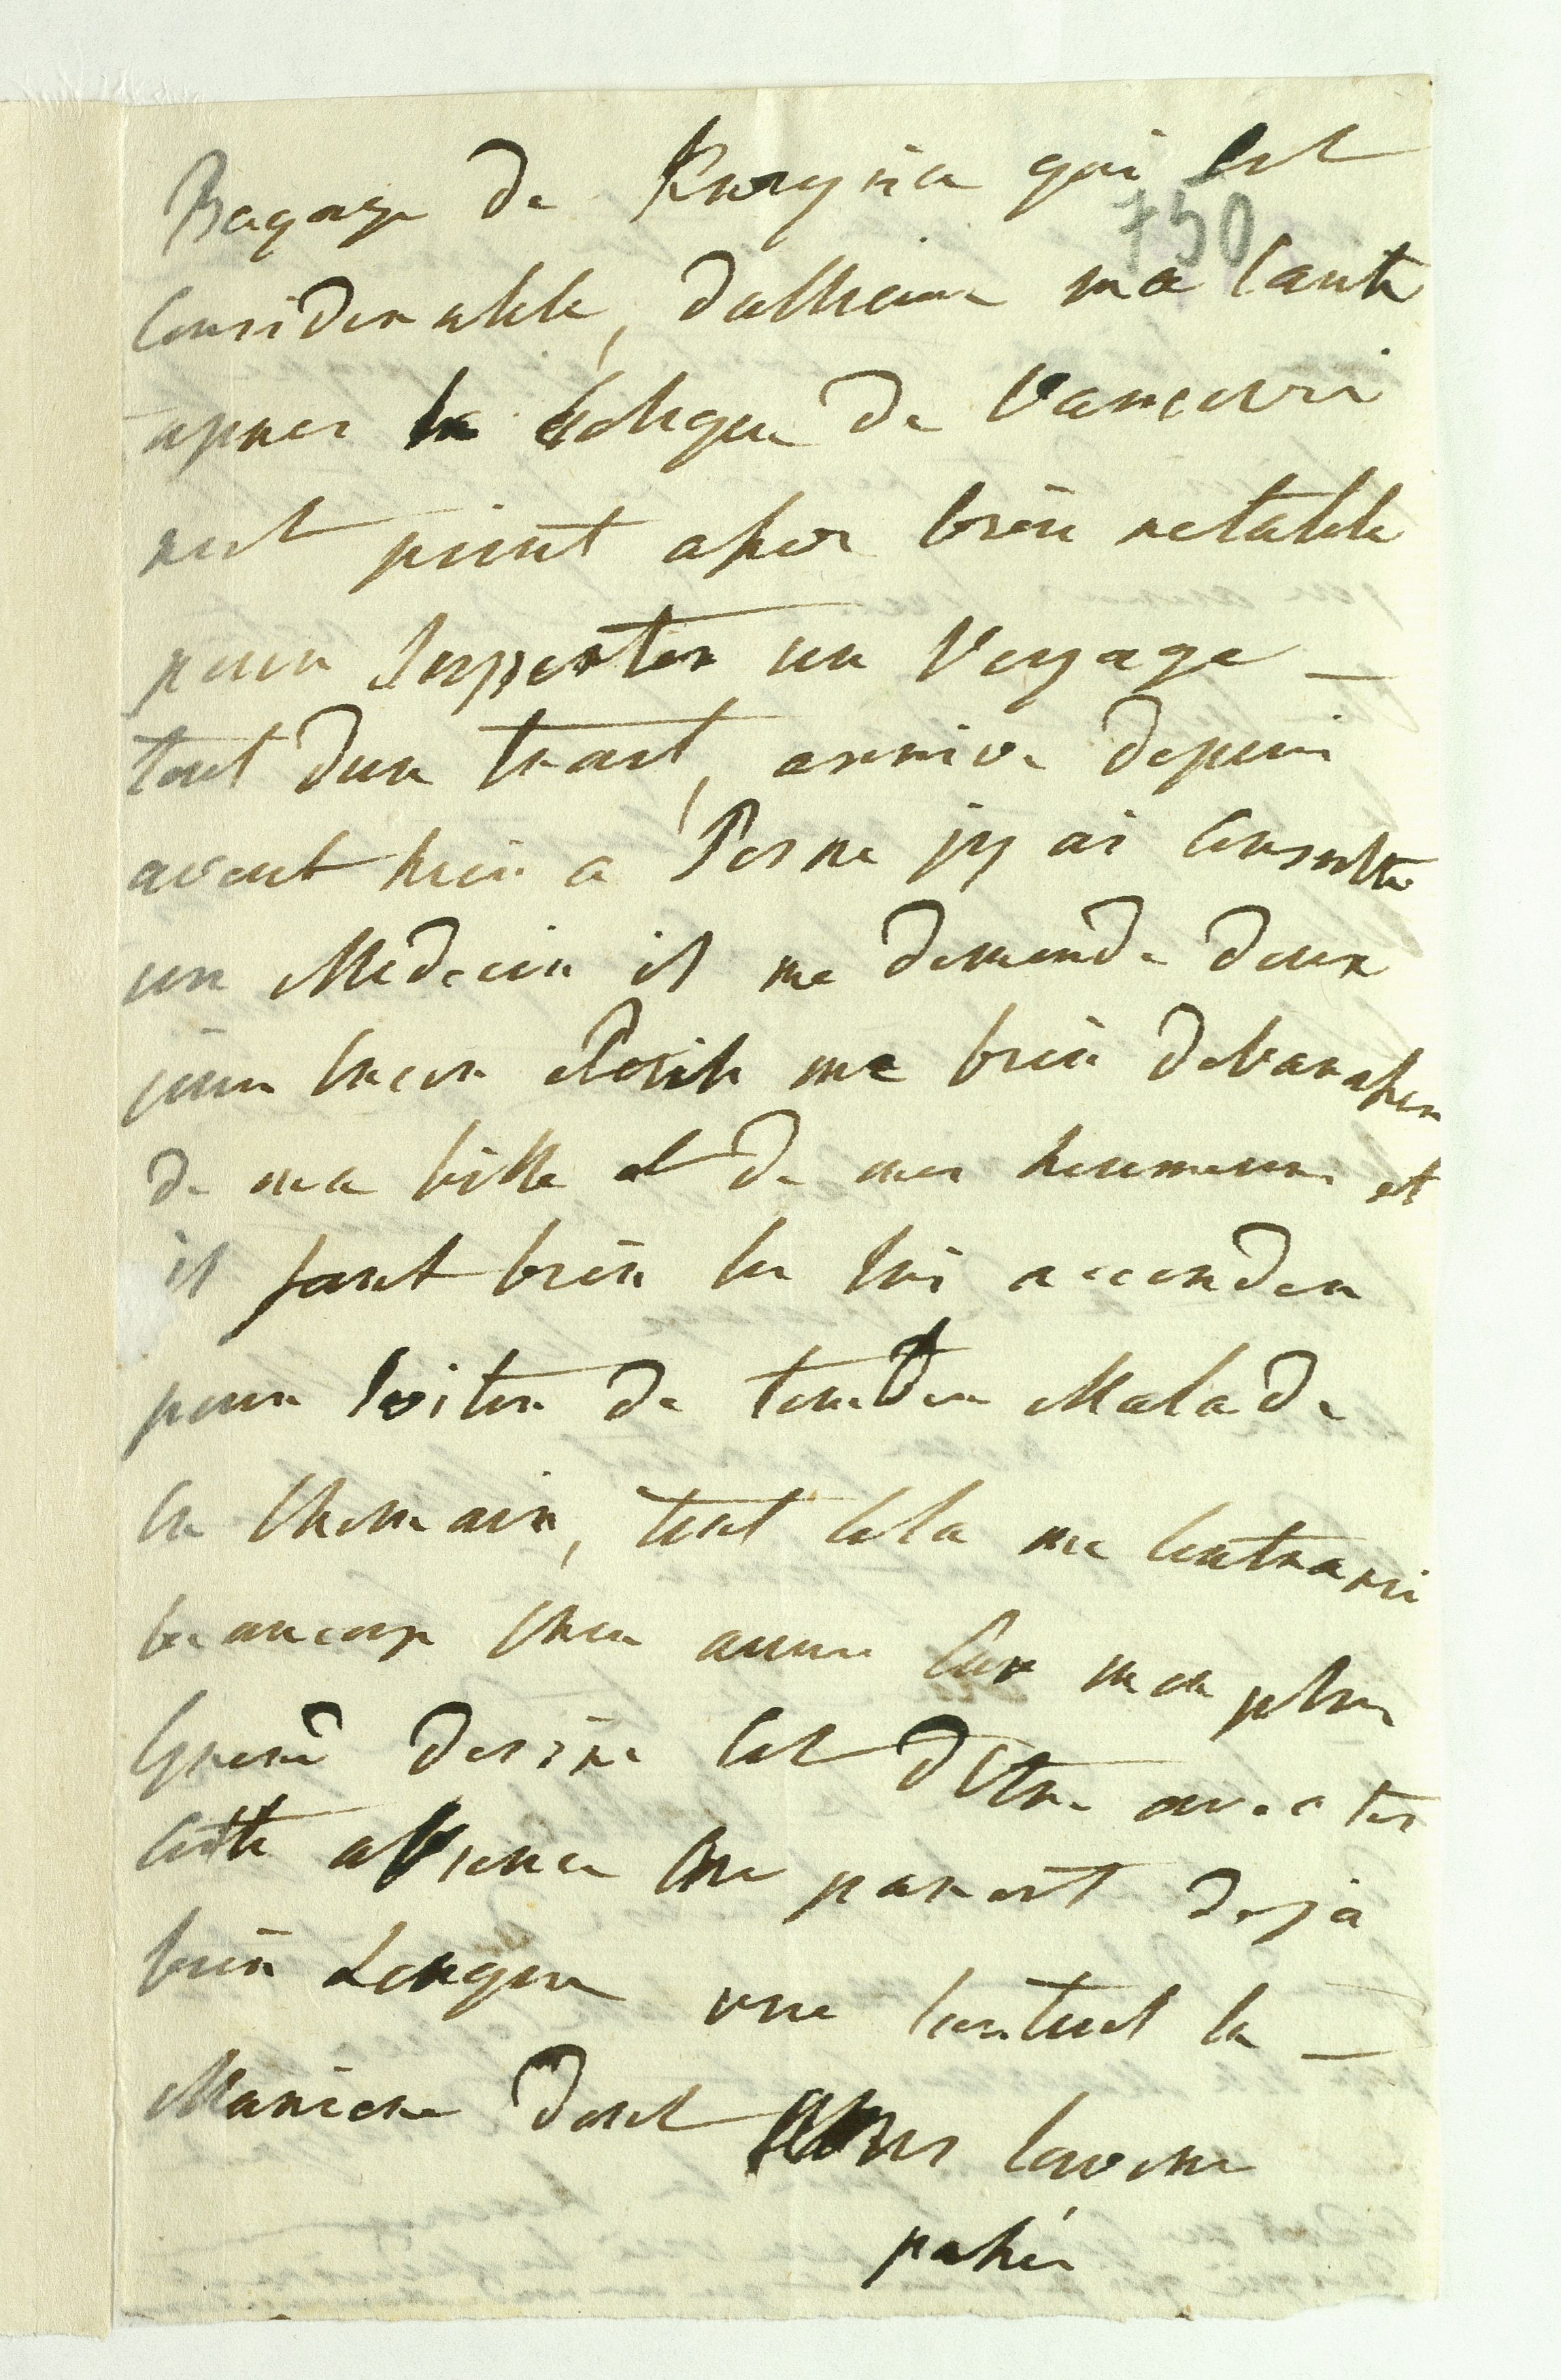 Bagage de Rusynia qui est
750
Considerable, dallieure ma Santé
apres la Colique de Varsovie
nest point assez bien retablie
pour Supporter un Voyage —
tout dun trait, arrive depuis
avant hier a Posne jy ai Consulté
un Médecin il me demande deux
jour pour me bien debarasser
de ma bille et de mes humeurs et
il faut bien les lui accorder
pour Eviter de tomber Malade
En Chemain, tout Cela me Contrari
beaucoup Cher amie Car mon plus
Grand desire Est dEtre avec toi
Cette absence Me parait deja
bien Longue vue surtout la —
Maniere dont nous lavons
passés